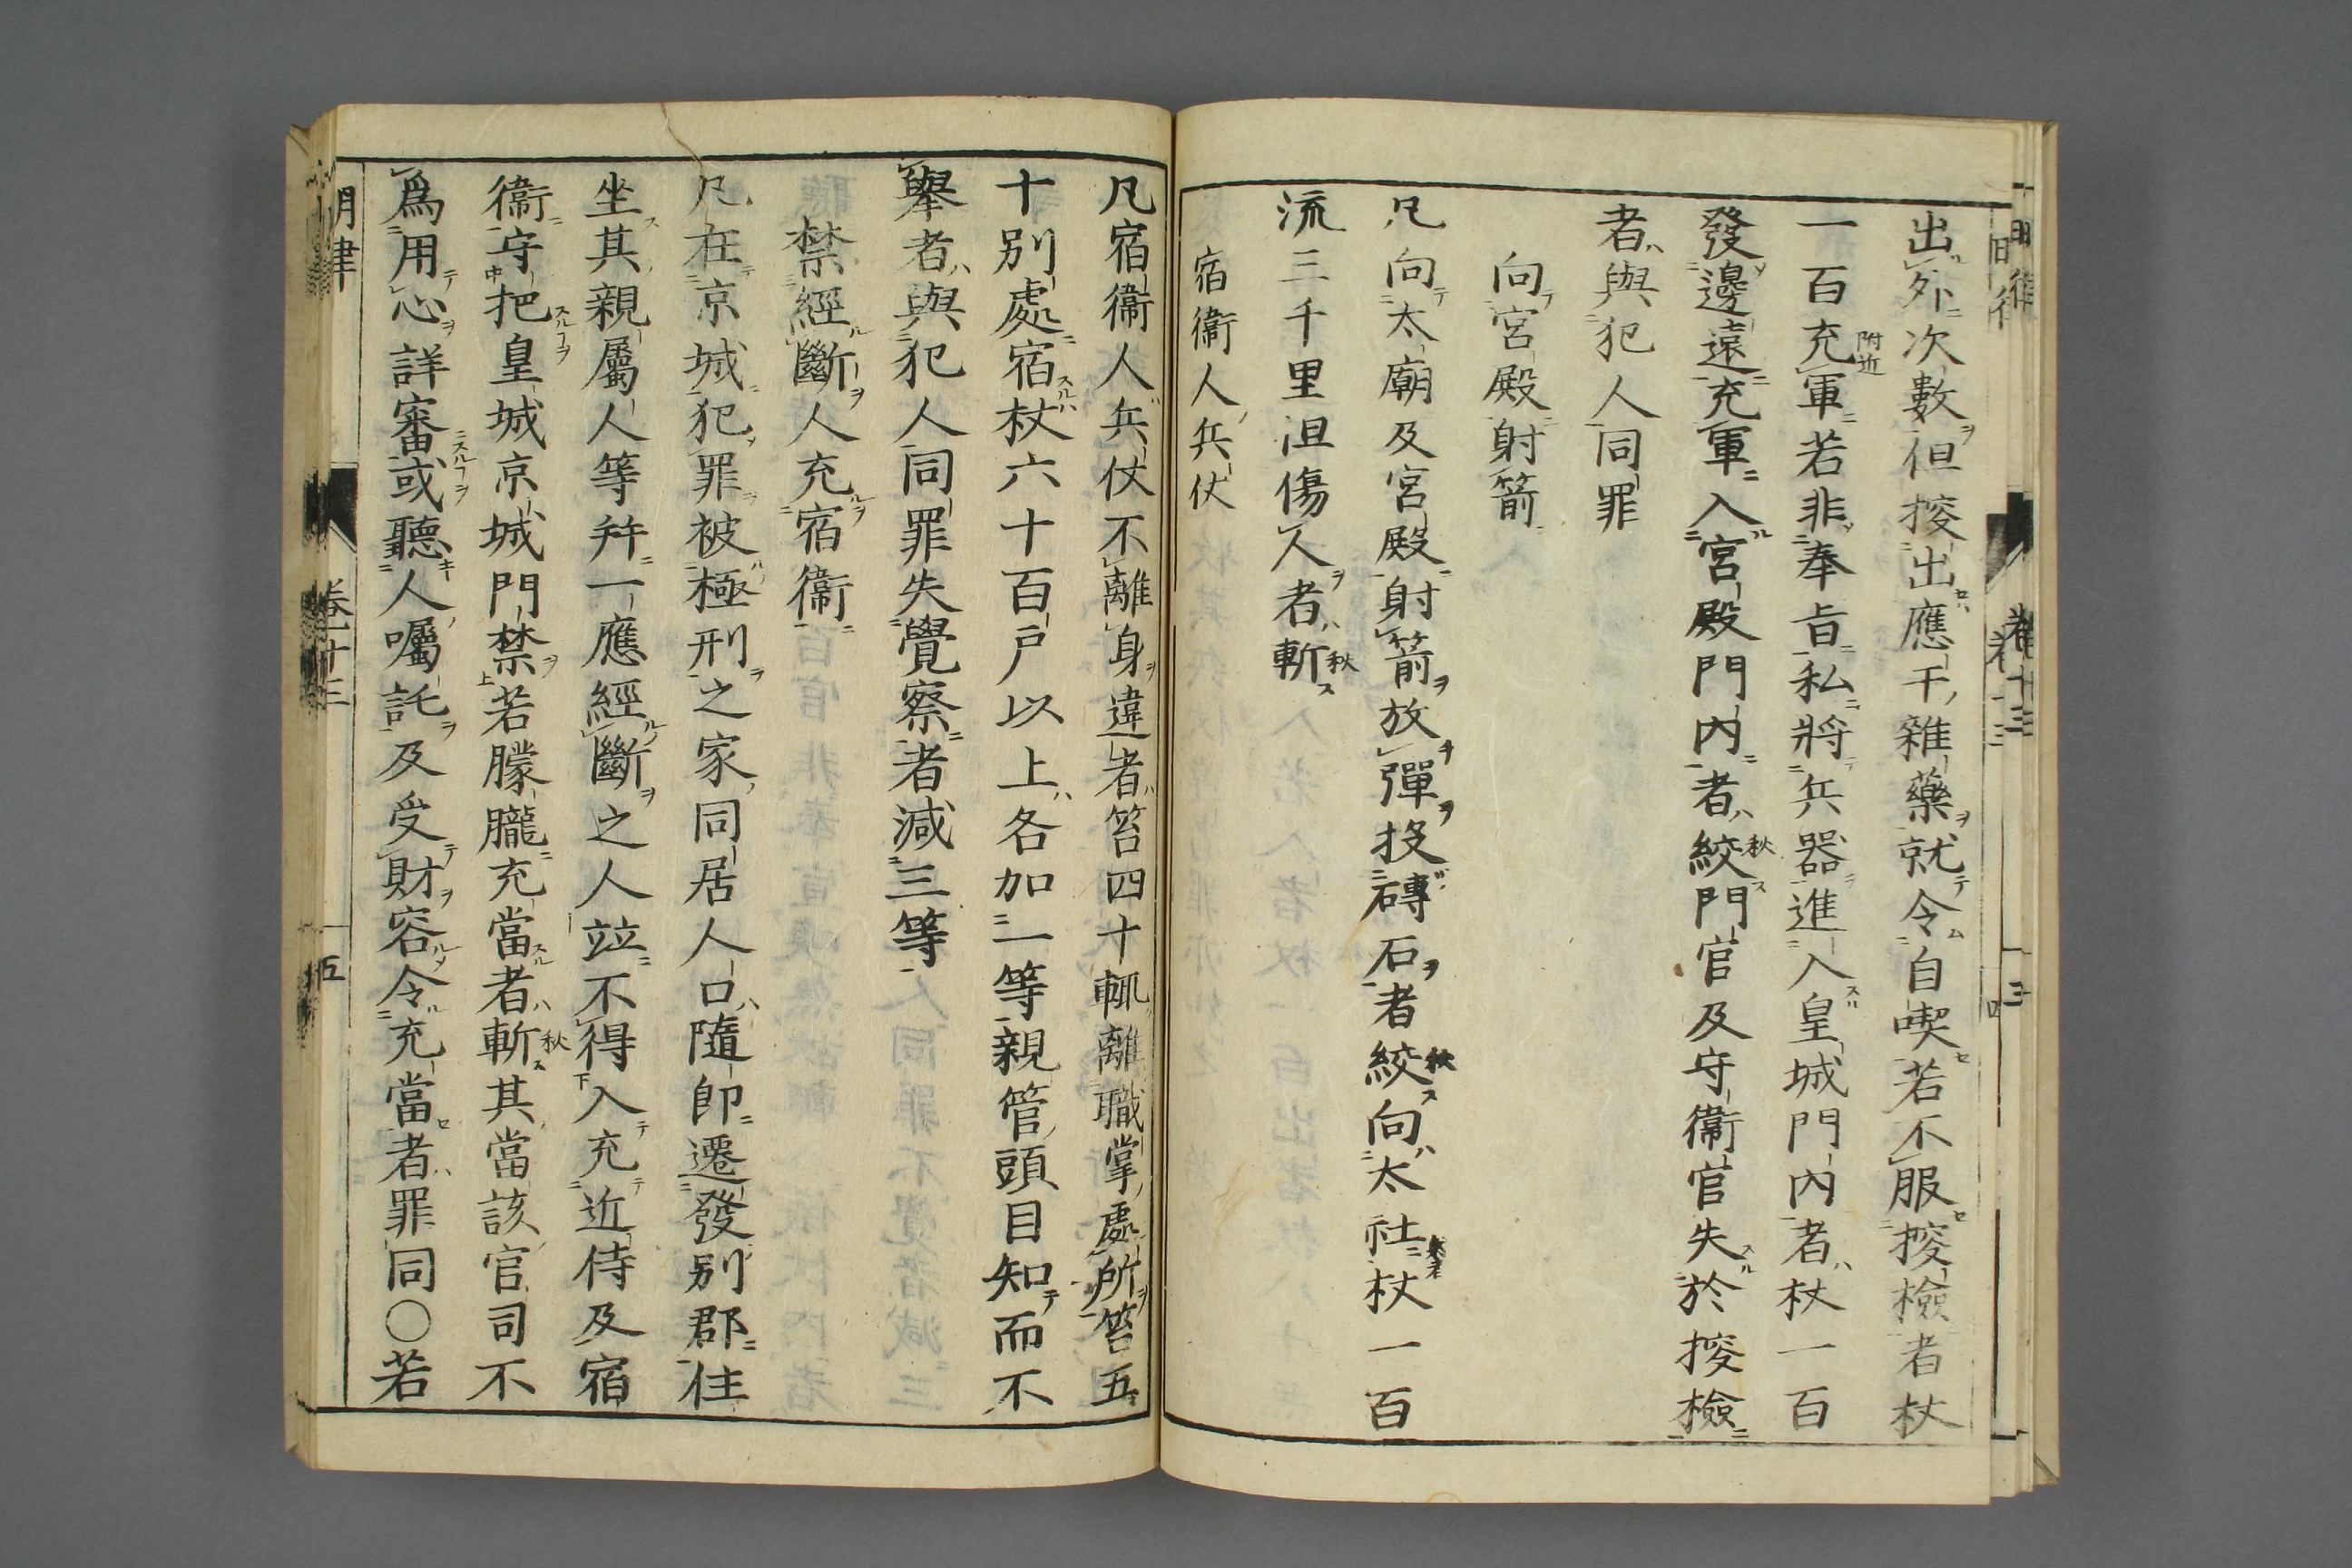 出外次數但搜出應干雜藥就令自喫若不服搜檢者杖
一百充附近軍若非奉旨私將兵器進入皇城門内者杖一百
發邊遠充軍入宮殿門内者絞秋門官及守衞官失於搜檢
者與犯人同罪
向宮殿射箭
凡向太廟及宮殿射箭放彈投磚石者絞秋向太社杖一百
流三千里但傷人者斬秋
宿衞人兵仗
凡宿衞人兵仗不離身違者笞四十輒離職掌處所笞五
十別處宿杖六十百戸以上各加一等親管頭目知而不
擧者與犯人同罪失覺察者減三等
禁經斷人充宿衞
凡在京城犯罪被極刑之家同居人口隨卽遷發別郡住
坐其親屬人等幷一應經斷之人竝不得入充近侍及宿
衞守把皇城京城門禁若朦朧充當者斬秋其當該官司不
爲用心詳審或聽人囑託及受財容令充當者罪同〇若
明律 卷十三 五